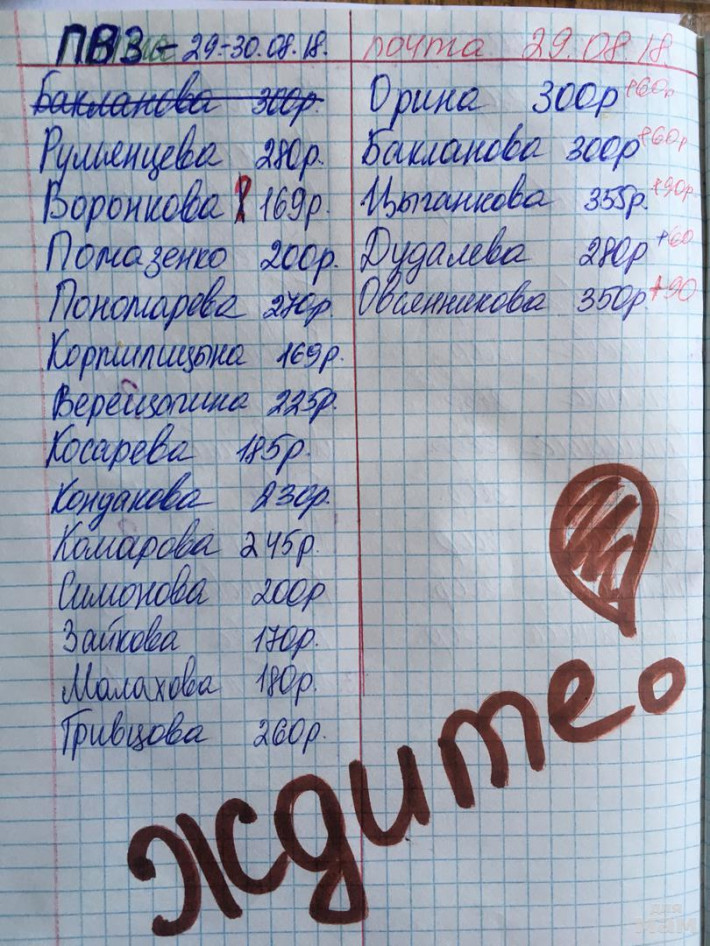 ПВЗ - 29-30.08.18.
Бакланова 300р.
Румянцева 280р.
Воронкова 169р.
Помазенко 200р.
Пономарева 270р.
Корпшлицына 169р.
Верейцогина 225р.
Косарева 185р.
Кондакова 230р.
Комарова 245р.
Симонова 200р
Зайкова 170р.
Малахова 180р.
Гривцова 260р.
почта 29.08.18.
Орина 300р +60р
Бакланова 300р +60р
Цыганкова 355р. +90р
Дудалева 280р +60
Овсянникова 350р. +90
Ждите!